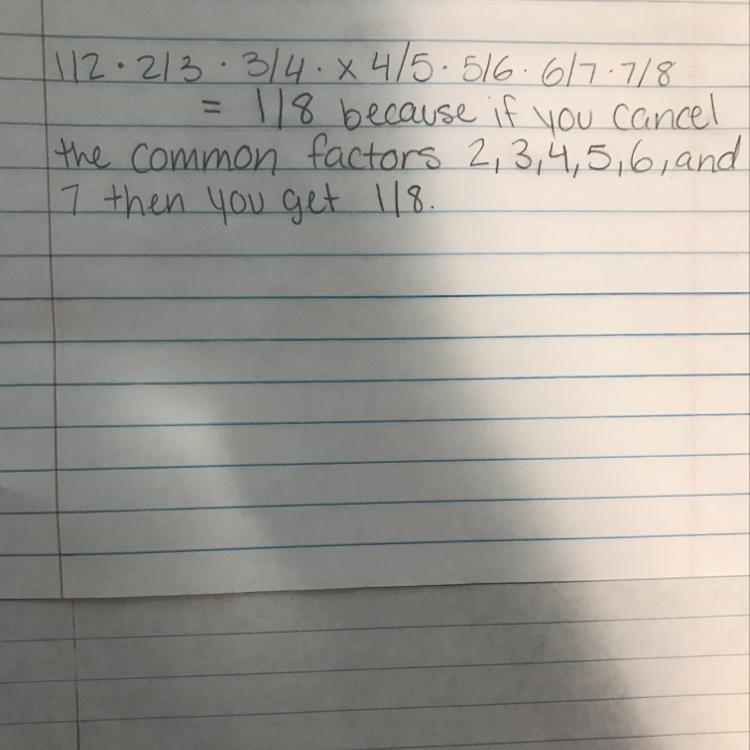 1/2 · 2/3 · 3/4 · x 4/5 · 5/6 · 6/7 · 7/8
= 1/8 because if you cancel
the common factors 2,3,4,5,6,and
7 then you get 1/8.